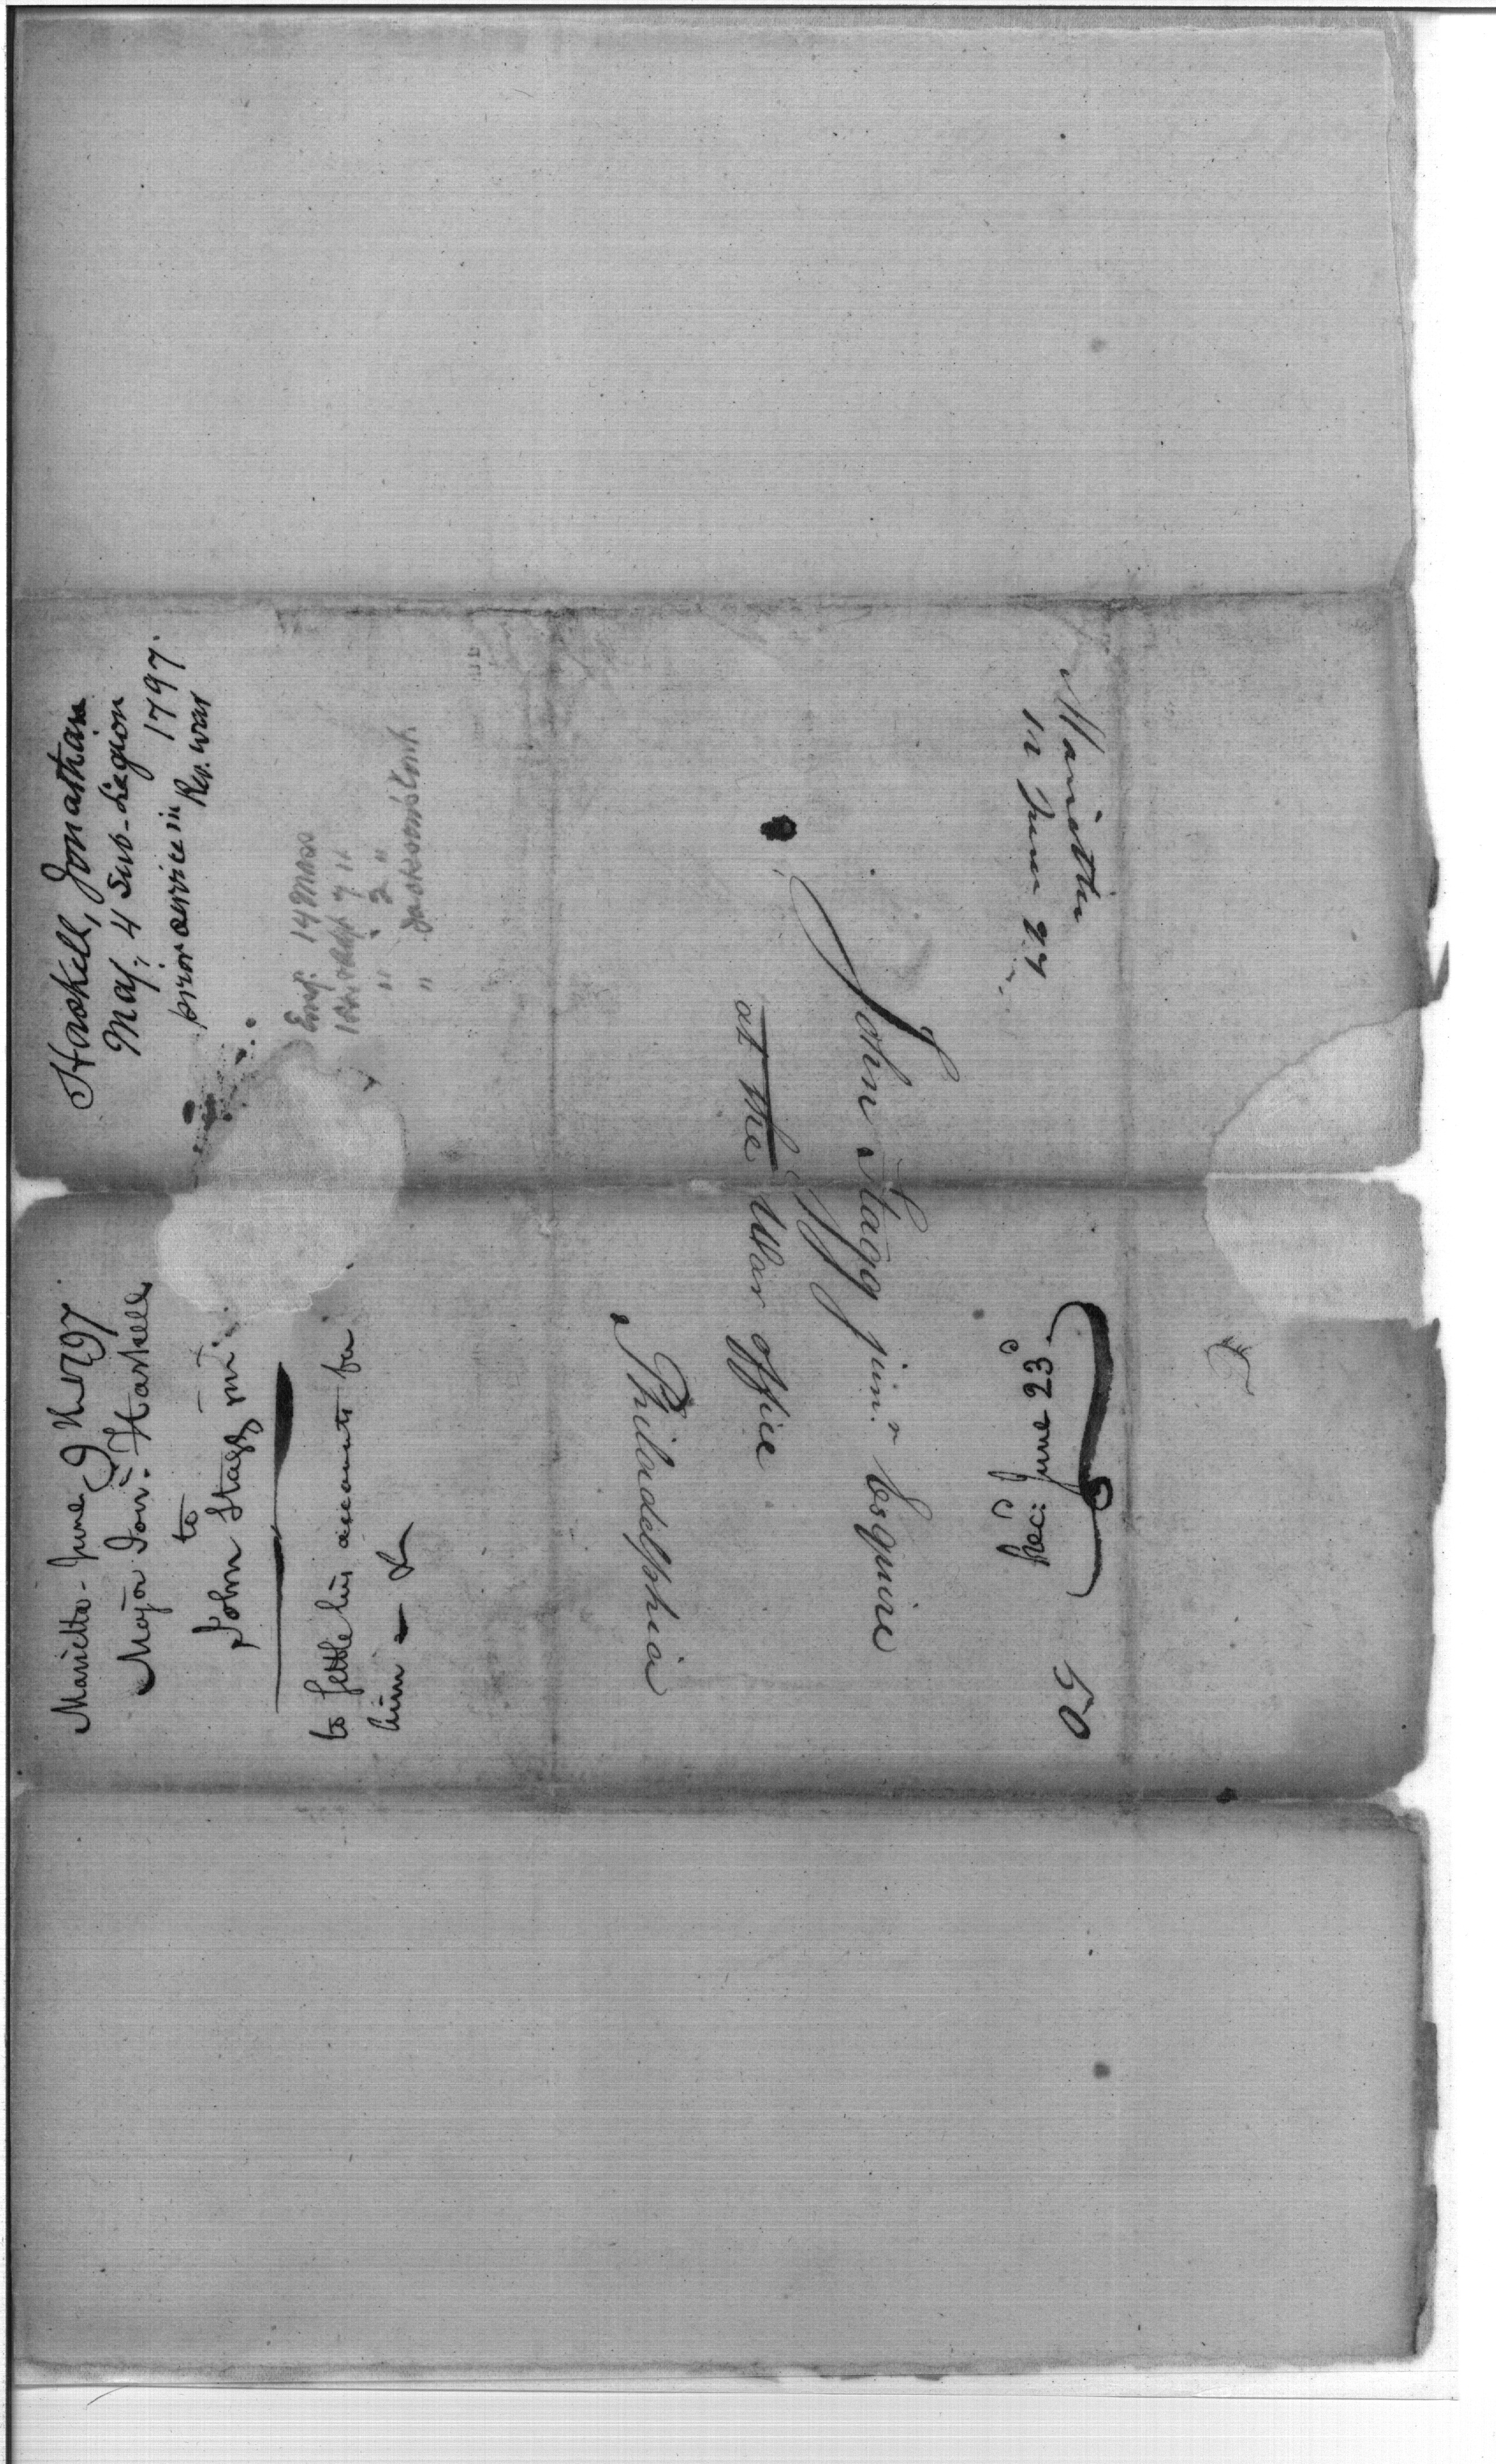 Haskell, Jonathan
Maj. 4 Sub-Legion
1797.
prior service in
Rev. war
Ens. 14 Mass
" 2 "
" Jacksons
Marietta
12 June 27
John Stagg jun.r Esquire
at the War office
Philadelphia
Marietta - June 9th 1797.
Major Jon.n Haskell
to
John Stagg jnr.
to settle his accounts for
him - &
Rec.d June 23d
50